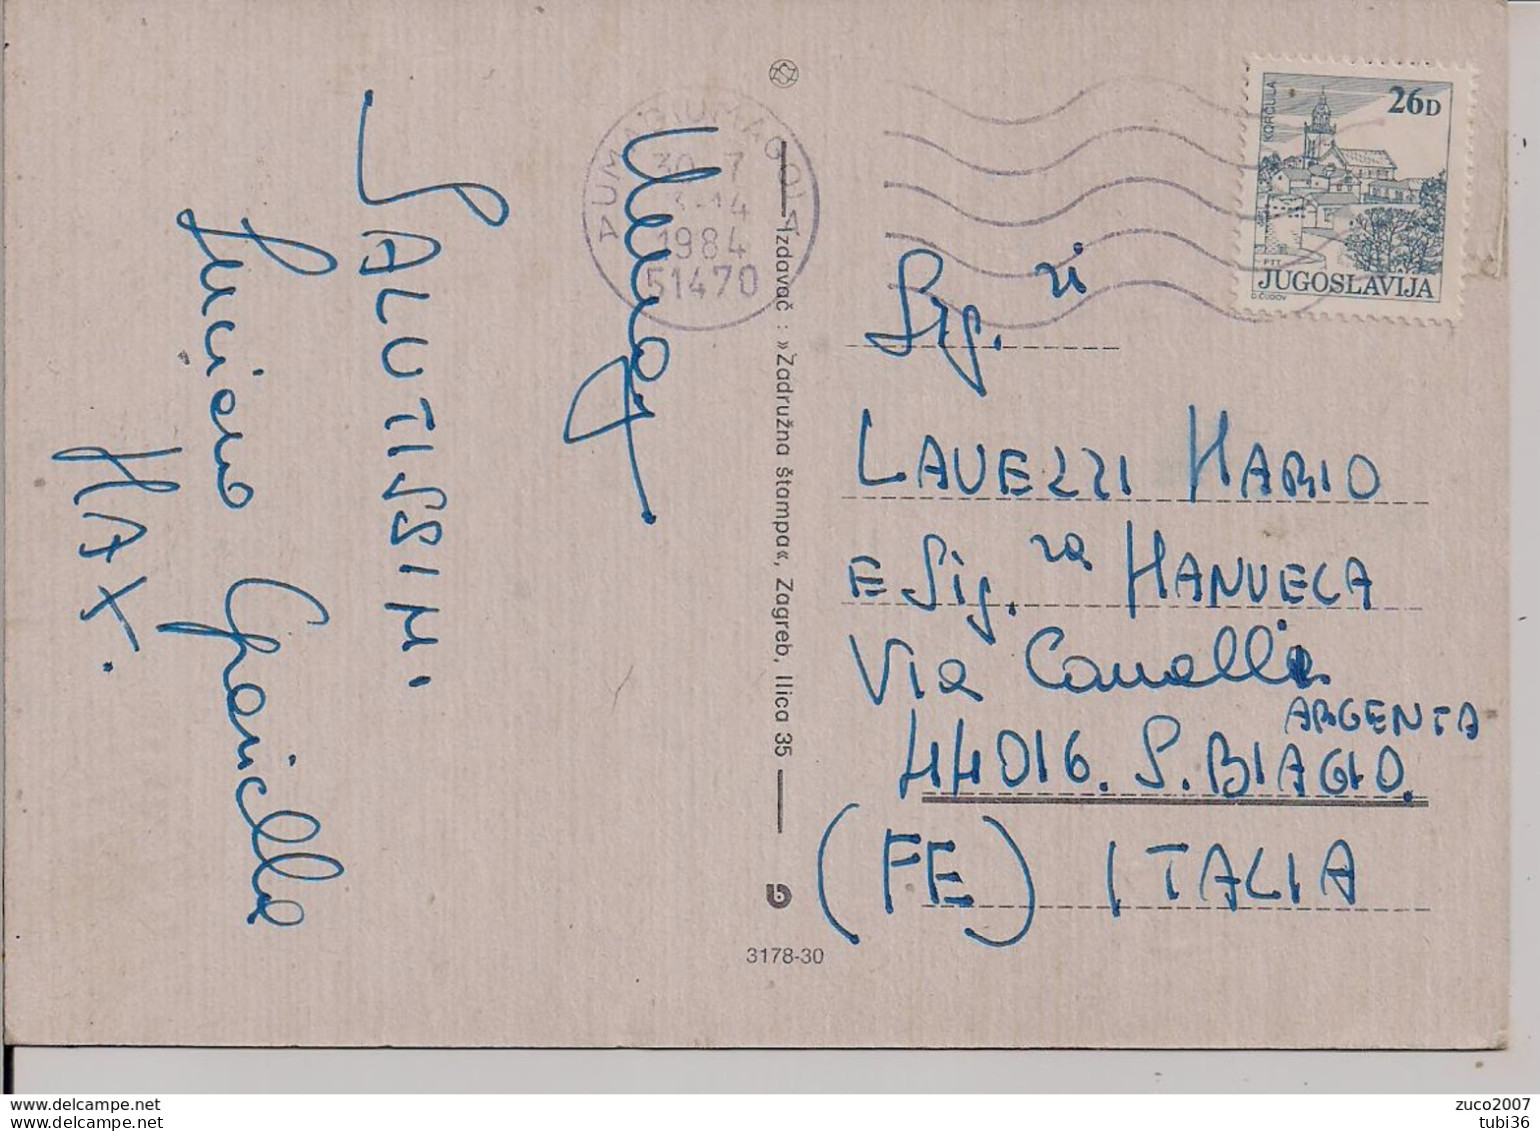 Umag
SALUTISSIMI
Luciano Graziella
MAX.
UMAG UMAGO
30-7
1984
51470
Izdavač : »Zadružna štampa«, Zagreb, Ilica 35
3178-30
KORČULA
26D
PTT
JUGOSLAVIJA
Sig.ri
LAVEZZI MARIO
E Sig.ra MANUELA
Via Canalli
ARGENTA
44016. S. BIAGIO.
(FE) ITALIA
zuco2007 zuco2007
tubi36 tubi36